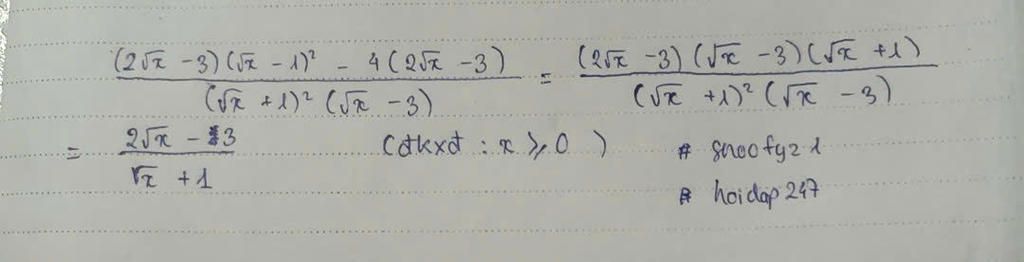 (2√x - 3)(√x - 1)² - 4(2√x - 3) / (√x + 1)²(√x - 3) = (2√x - 3)(√x - 3)(√x + 1) / (√x + 1)²(√x - 3)
= 2√x - 3 / √x + 1 (đkxđ : x ⩾ 0) # snoofyz1
# hoidap247